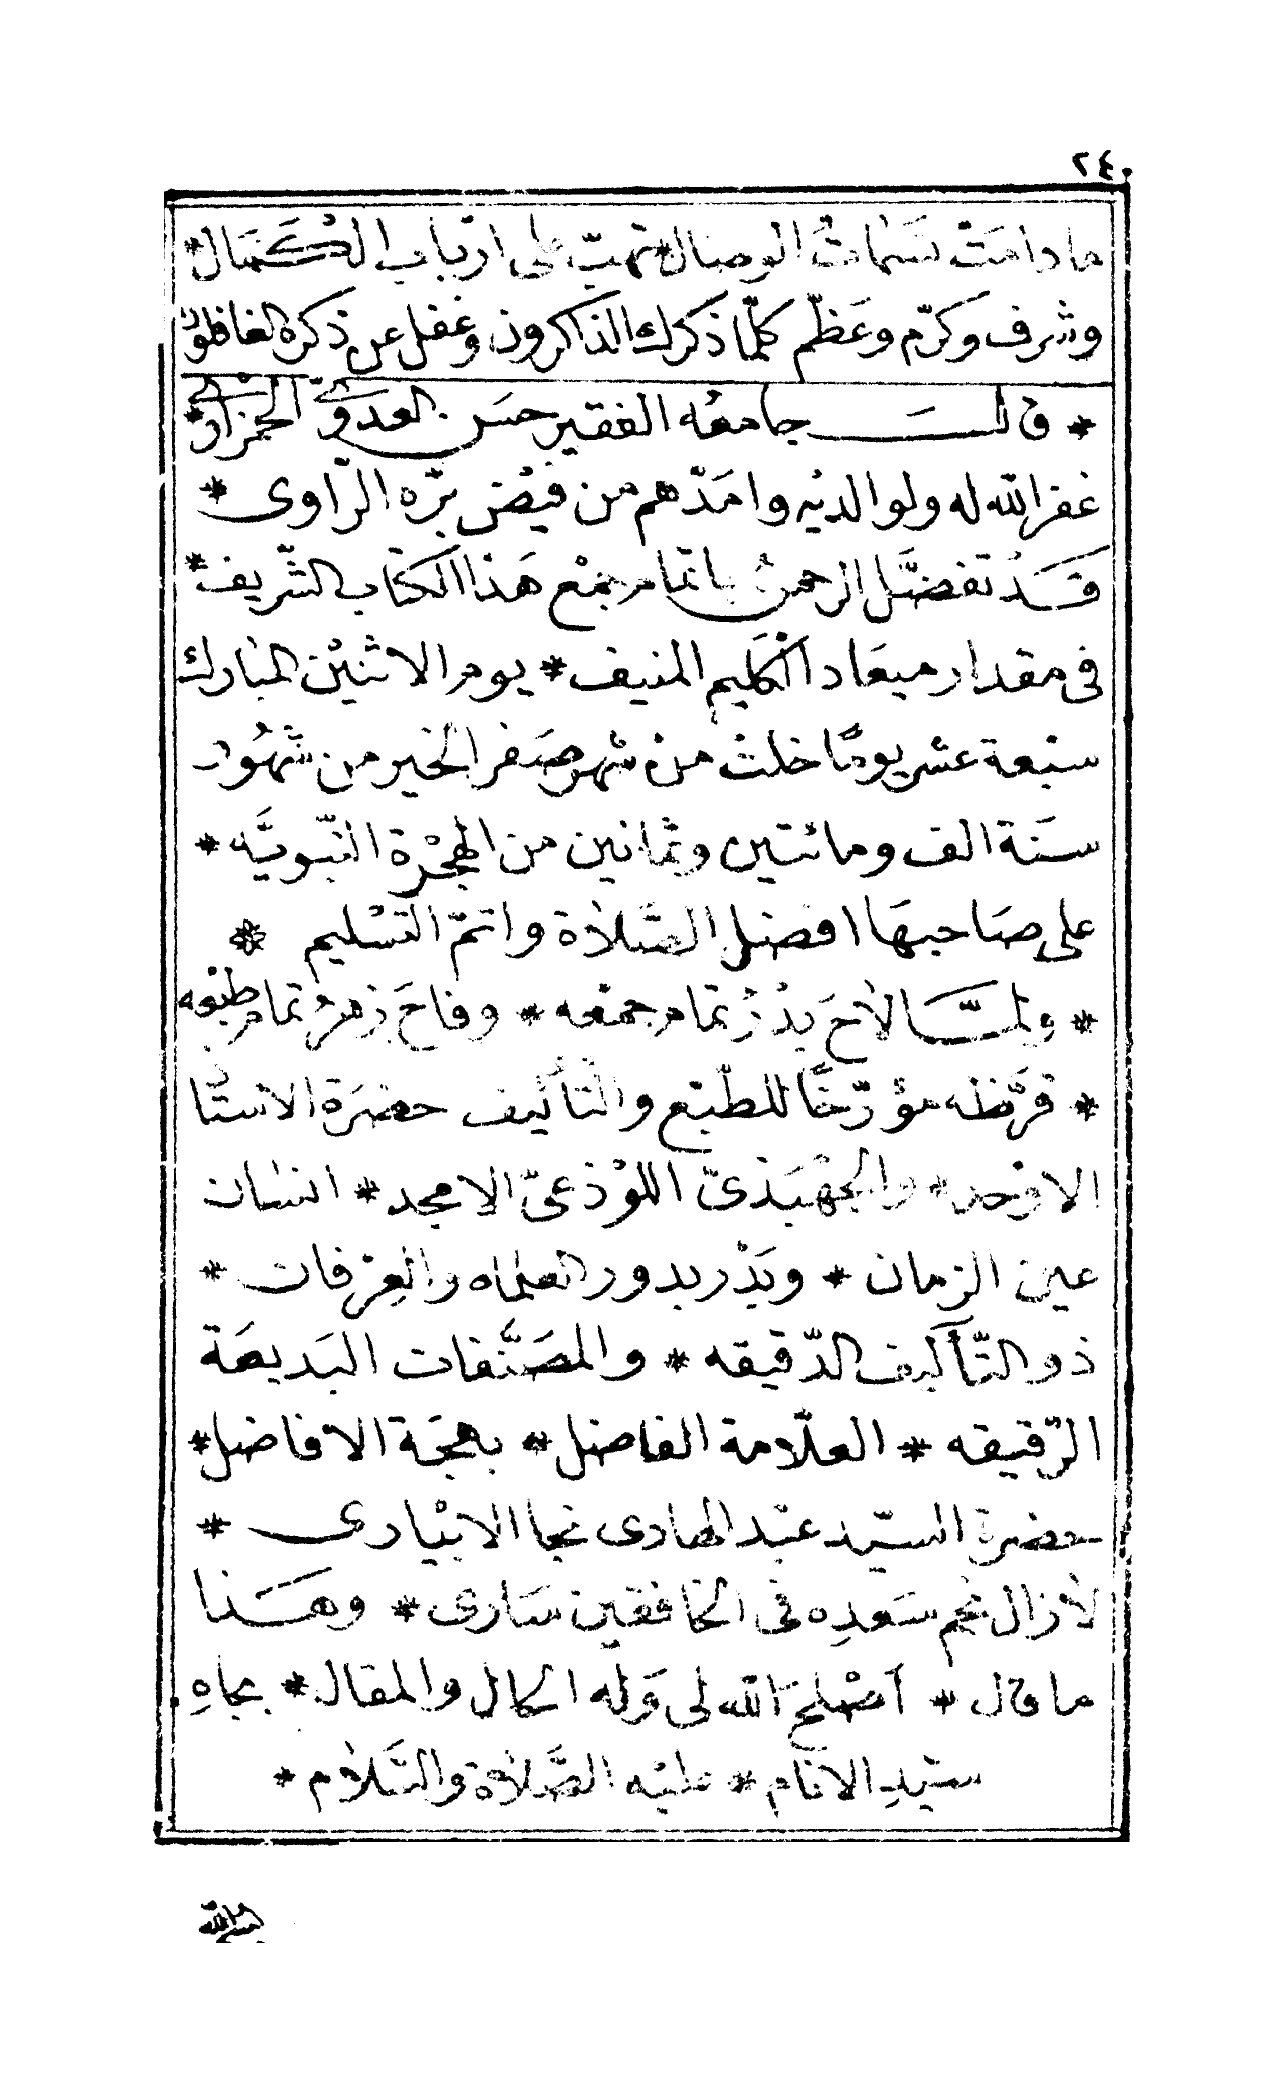 ٢٤٠
ما دامَتْ نَسَمٰاتُ الوِصَال * تهبّ على ارْبابِ الكَمَال *
وشرف وكرّم وعَظّم كلّما ذكرك الذاكرون وغفل عن ذكره الغافلون
* قالَــ جامعُه الفقير حسَن العدوىّ الحمزاوى *
غفر الله له ولوالديْه وامَدّهم من فيْض برّه الرّاوى *
قَد تفضَّل الرحمنُ باتمام جمْع هَذا الكتاب الشّريف *
فى مقدار ميعَاد الكَليم المنيف * يوم الاثنيْن المبارك
سبْعة عشر يومًا خلتْ منْ شهر صَفر الخير من شهُور
سَنة الف ومائتين وثمانين من الهجْرة النّبويَّه *
على صَاحبهَا افضل الصَّلاة واتمّ التسْليم *
* ولمّـا لاٰحَ بَدْرُ تمام جمْعه * وفاحَ زهرُ تمام طبْعه
* قرَّظه مؤرّخًا للطبْع والتأليف حضرَة الاستاذ
الاوْحد * والجهْبَذىّ اللوْذعىّ الامجد * انسٰان
عين الزمان * وبَدْر بدور العلماء والعِرْفان *
ذو التّأليف الدّقيقه * والمصَنَّفات البَديعَة
الرّقيقه * العلّامة الفاضل * بهجَة الافاضل *
حضرة السيّد عبْد الهادى نجا الابْيارى *
لاٰزال نجم سَعدِه فى الخافقين سَارى * وهَــذا
ما قال * أصْلحَ الله لى وَله الحال والمقال * بجاهِ
سيّدِ الانام * عليْه الصَّلاٰة والسَّلاٰم *
بسم الله